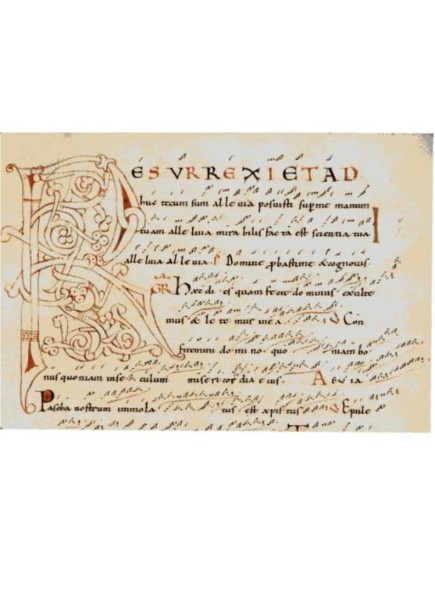 RESURREXI ET AD
huc tecum sum al le luia posuisti super me manum
tuam alle luia mira bilis fac ta est scientia tua
alle luia al le luia. P Domine pbastime & cognouis
GR Haec di es quam fecit do minus exulte
mus & le te mur in e a V Con
fitemini do mi no quo niam bo
nus quoniam in se culum miseri cor dia e ius. A LL L VIA
Pascha nostrum immola tus est xpis tus V Epule